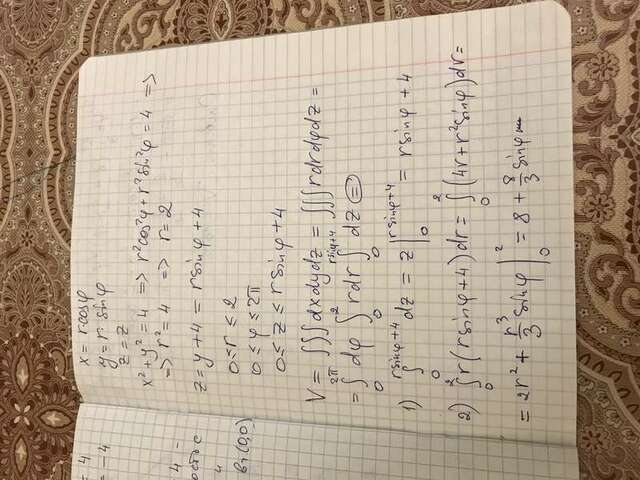 x = rcosφ
y = r sinφ
z = z
x² + y² = 4 => r²cos²φ + r²sin²φ = 4 =>
=> r² = 4 => r = 2
z = y + 4 = r sinφ + 4
0 ≤ r ≤ 2
0 ≤ φ ≤ 2π
0 ≤ z ≤ r sinφ + 4
V = ∭ dxdydz = ∭ rdrdφdz =
= ∫₀^{2π} dφ ∫₀^{2} rdr ∫₀^{rsinφ+4} dz (=)
1) ∫₀^{rsinφ+4} dz = z |₀^{rsinφ+4} = rsinφ + 4
2) ∫₀² r(rsinφ+4)dr = ∫₀² (4r + r²sinφ)dr =
= 2r² + r³/3 sinφ |₀² = 8 + 8/3 sinφ
= 4
= -4
4
ость с
4
вг(0,0)